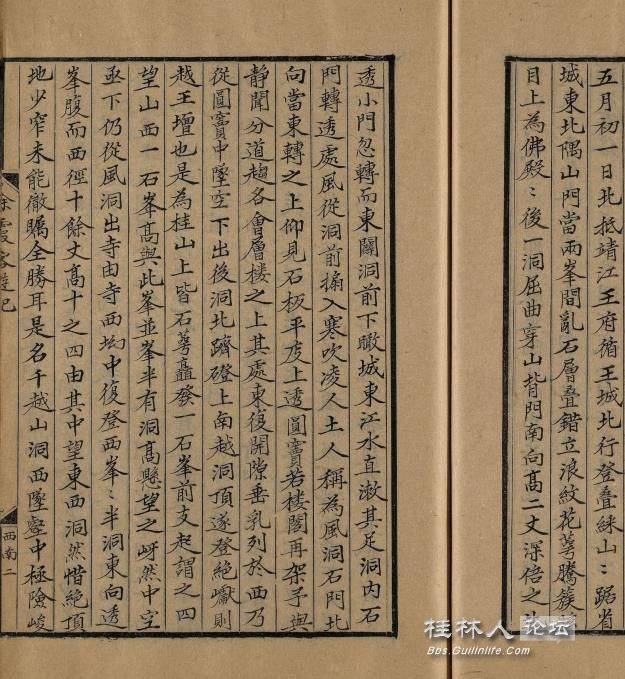 五月初一日北抵靖江王府循王城北行登疊綵山〻踞省
城東北隅山門當兩峯間亂石層疊錯立浪紋花萼騰簇
目上為佛殿〻後一洞屈曲穿山背門南向高二丈深倍之
透小門忽轉而東闢洞前下瞰城東江水直漱其足洞内石
門轉透處風從洞前搧入寒吹凌人土人稱為風洞石門北
向當東轉之上仰見石板平庋上透圓竇若樓閣再架予與
靜聞分道趨各會層楼之上其處東復開隙垂乳列於西乃
從圓竇中墜空下出後洞北躋磴上南越洞頂遂登絕巘則
越王壇也是為桂山上皆石萼矗發一石峯前支起謂之四
望山西一石峯高與此峯並峯半有洞高懸望之岈然中空
亟下仍從風洞出寺由寺西坳中復登西峯〻半洞東向透
峯腹而西徑十餘丈高十之四由其中望東西洞然惜絕頂
地少窄未能徹矚全勝耳是名千越山洞西墜壑中極險峻
徐霞客遊記
西南二
桂林人论坛
Bbs.Guilinlife.com